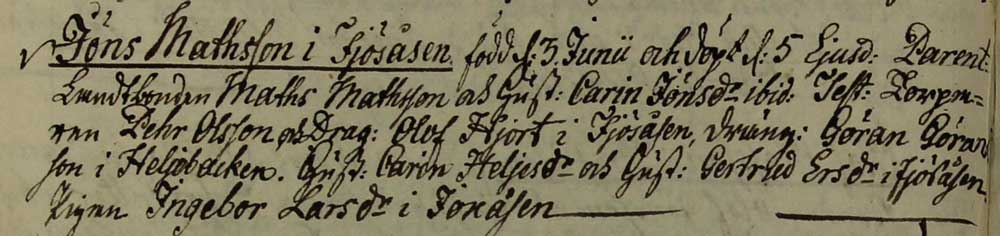 Jöns Mathsson i Fjösåsen. född d: 3 Junii och döpt d: 5 Ejusd: Parent:
Landtbonden Maths Mathsson och Hust: Carin Jönsdr ibid: Test: Torpa=
ren Pehr Olsson, och Drag: Olof Hjort i Fjösåsen, dräng: Göran Göran
son i Heljebacken. Hust: Carin Heljesdr och Hust: Gertrud Ersdr i Fjösåsen
Pigan Ingebor Larsdr i Jonåsen